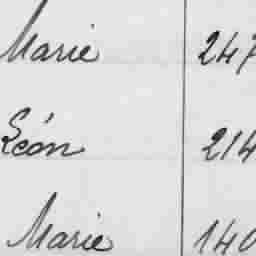 Marie 247
Léon 214
Marie 140